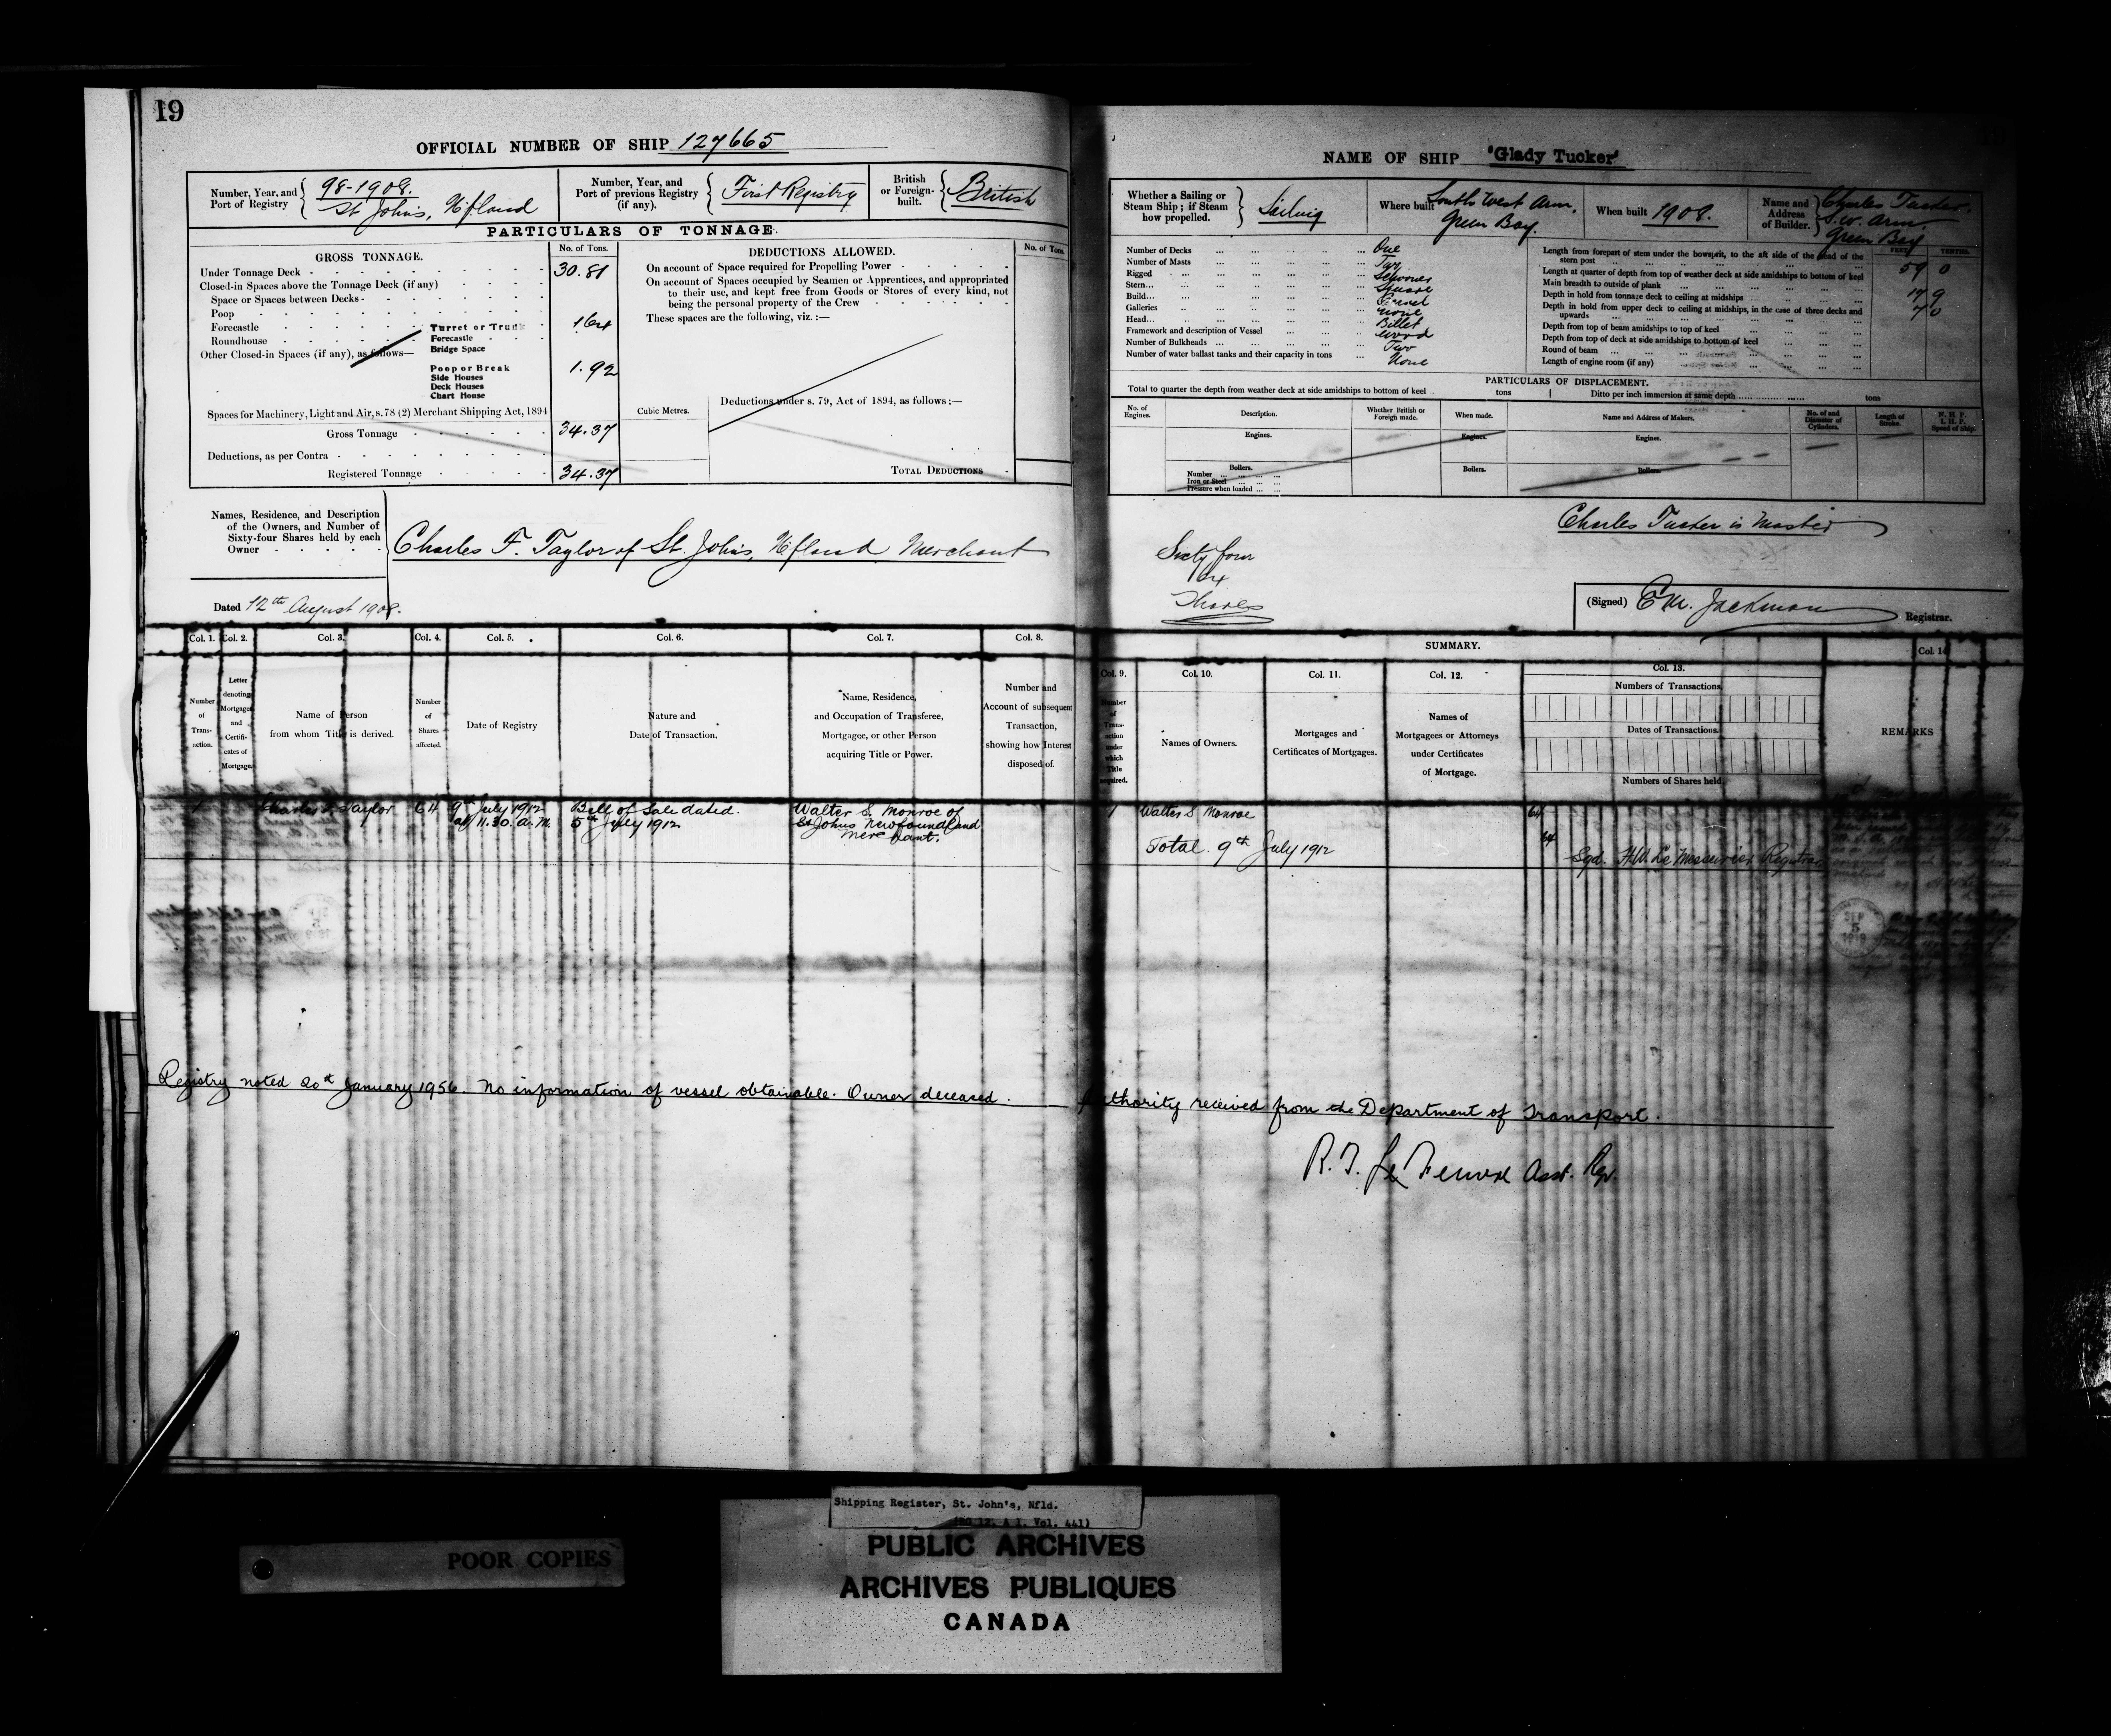 19
OFFICIAL NUMBER OF SHIP 127665
Number, Year, and Port of Registry { 98-1908. St Johns, Nfland
Number, Year, and Port of previous Registry (if any). { First Registry
British or Foreign-built. { British
PARTICULARS OF TONNAGE.
GROSS TONNAGE.
No. of Tons.
Under Tonnage Deck - 30.81
Closed-in Spaces above the Tonnage Deck (if any)
Space or Spaces between Decks -
Poop
Forecastle
Roundhouse
Other Closed-in Spaces (if any), as follows—
Turret or Trunk
Forecastle
Bridge Space
1.64
Poop or Break
Side Houses
Deck Houses
Chart House
1.92
Spaces for Machinery, Light and Air, s. 78 (2) Merchant Shipping Act, 1894
Gross Tonnage - 34.37
Deductions, as per Contra
Registered Tonnage - 34.37
Cubic Metres.
DEDUCTIONS ALLOWED.
No. of Tons
On account of Space required for Propelling Power
On account of Spaces occupied by Seamen or Apprentices, and appropriated
to their use, and kept free from Goods or Stores of every kind, not
being the personal property of the Crew
These spaces are the following, viz. :—
Deductions under s. 79, Act of 1894, as follows :—
TOTAL DEDUCTIONS
Names, Residence, and Description
of the Owners, and Number of
Sixty-four Shares held by each
Owner
Charles F. Taylor of St. Johns, Nfland Merchant
Dated 12th August 1908.
NAME OF SHIP 'Glady Tucker'
Whether a Sailing or Steam Ship ; if Steam how propelled. } Sailing
Where built South West Arm, Green Bay.
When built 1908.
Name and Address of Builder. } Charles Tucker, S.W. Arm Green Bay
Number of Decks ... One
Number of Masts ... Two
Rigged ... Schooner
Stern ... Square
Build ... Carvel
Galleries ... none
Head ... Billet
Framework and description of Vessel ... Wood
Number of Bulkheads ... Two
Number of water ballast tanks and their capacity in tons ... None
FEET. TENTHS.
Length from forepart of stem under the bowsprit, to the aft side of the head of the
stern post 59 0
Length at quarter of depth from top of weather deck at side amidships to bottom of keel
Main breadth to outside of plank 17 9
Depth in hold from tonnage deck to ceiling at midships 7 0
Depth in hold from upper deck to ceiling at midships, in the case of three decks and
upwards
Depth from top of beam amidships to top of keel
Depth from top of deck at side amidships to bottom of keel
Round of beam
Length of engine room (if any)
PARTICULARS OF DISPLACEMENT.
Total to quarter the depth from weather deck at side amidships to bottom of keel . tons
Ditto per inch immersion at same depth tons
No. of Engines.
Description.
Whether British or Foreign made.
When made.
Name and Address of Makers.
No. of and Diameter of Cylinders.
Length of Stroke.
N. H. P.
I. H. P.
Speed of Ship.
Engines.
Engines.
Engines.
Boilers.
Number
Iron or Steel
Pressure when loaded
Boilers.
Boilers.
Charles Tucker is Master
Sixty four
64
Shares
(Signed) E M. Jackman Registrar.
Col. 1. Col. 2. Col. 3. Col. 4. Col. 5. Col. 6. Col. 7. Col. 8.
Number of Transaction.
Letter denoting Mortgages and Certificates of Mortgage.
Name of Person from whom Title is derived.
Number of Shares affected.
Date of Registry
Nature and Date of Transaction.
Name, Residence, and Occupation of Transferee, Mortgagee, or other Person acquiring Title or Power.
Number and Account of subsequent Transaction, showing how Interest disposed of.
SUMMARY.
Col. 9. Col. 10. Col. 11. Col. 12. Col. 13. Col. 14
Number of Transaction under which Title acquired.
Names of Owners.
Mortgages and Certificates of Mortgages.
Names of Mortgagees or Attorneys under Certificates of Mortgage.
Numbers of Transactions.
Dates of Transactions.
Numbers of Shares held.
REMARKS
1 Charles F. Taylor 64
9th July 1912
at 11.30. a. m.
Bill of Sale dated.
5th July 1912
Walter S. Monroe of
St Johns Newfoundland
Merchant.
1 Walter S Monroe 64
Total. 9th July 1912 64
Sgd. H.W. Le Messurier Registrar
SEP
5
Registry noted 20th January 1956. No information of vessel obtainable. Owner deceased. Authority received from the Department of Transport.
Asst. Rgr.
Shipping Register, St. John's, Nfld.
(RG 12, A 1, Vol. 441)
POOR COPIES
PUBLIC ARCHIVES
ARCHIVES PUBLIQUES
CANADA